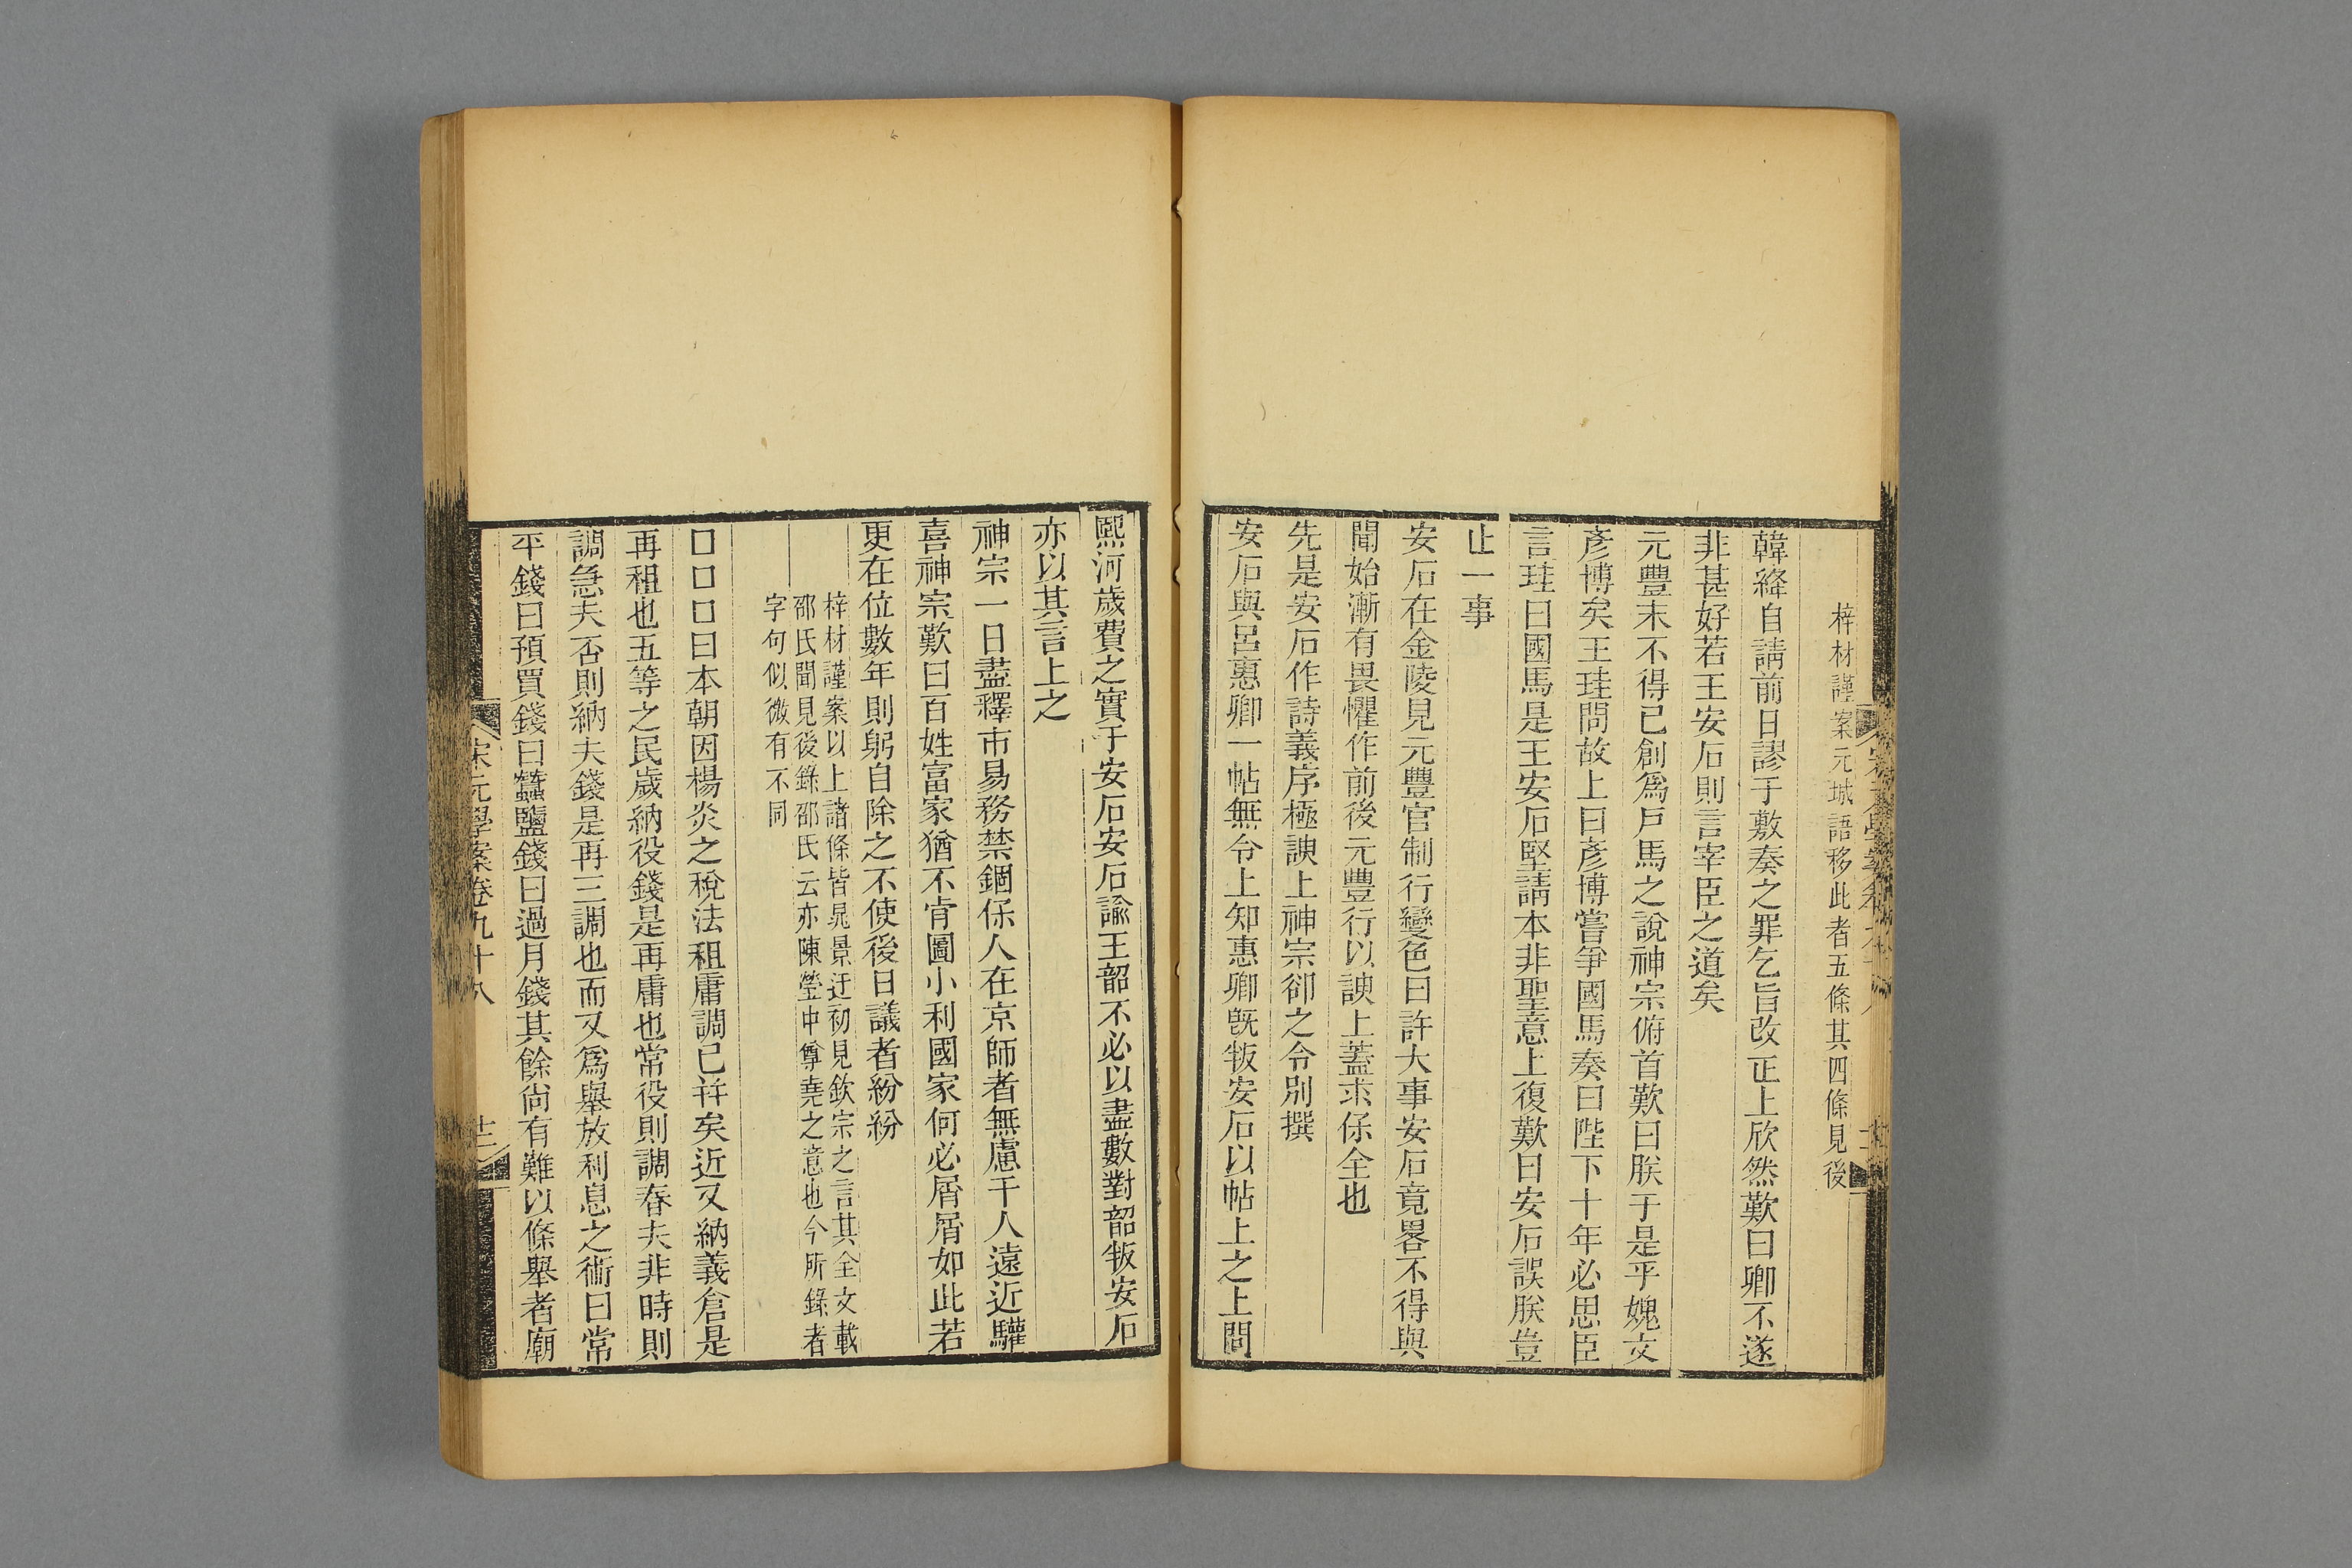 梓材謹案元城語移此者五條其四條見後
韓絳自請前日謬于敷奏之罪乞旨改正上欣然歎曰卿不遂
非甚好若王安石則言宰臣之道矣
元豐末不得已創爲戸馬之說神宗俯首歎曰朕于是乎媿文
彥博矣王珪問故上曰彥博嘗爭國馬奏曰陛下十年必思臣
言珪曰國馬是王安石堅請本非聖意上復歎曰安石誤朕豈
止一事
安石在金陵見元豐官制行變色曰許大事安石竟畧不得與
聞始漸有畏懼作前後元豐行以諛上蓋求保全也
先是安石作詩義序極諛上神宗卻之令別撰
安石與呂惠卿一帖無令上知惠卿旣叛安石以帖上之上問
熙河歲費之實于安石安石諭王韶不必以盡數對韶叛安石
亦以其言上之
神宗一日盡釋市易務禁錮保人在京師者無慮千人遠近驩
喜神宗歎曰百姓富家猶不肯圖小利國家何必屑屑如此若
更在位數年則躬自除之不使後日議者紛紛
梓材謹案以上諸條皆晁景迂初見欽宗之言其全文載
邵氏聞見後錄邵氏云亦陳瑩中尊堯之意也今所錄者
字句似微有不同
口口口曰本朝因楊炎之稅法租庸調已幷矣近又納義倉是
再租也五等之民歲納役錢是再庸也常役則調春夫非時則
調急夫否則納夫錢是再三調也而又爲舉放利息之術曰常
平錢曰預買錢曰蠶鹽錢曰過月錢其餘尙有難以條舉者廟
宋元學案卷九十八